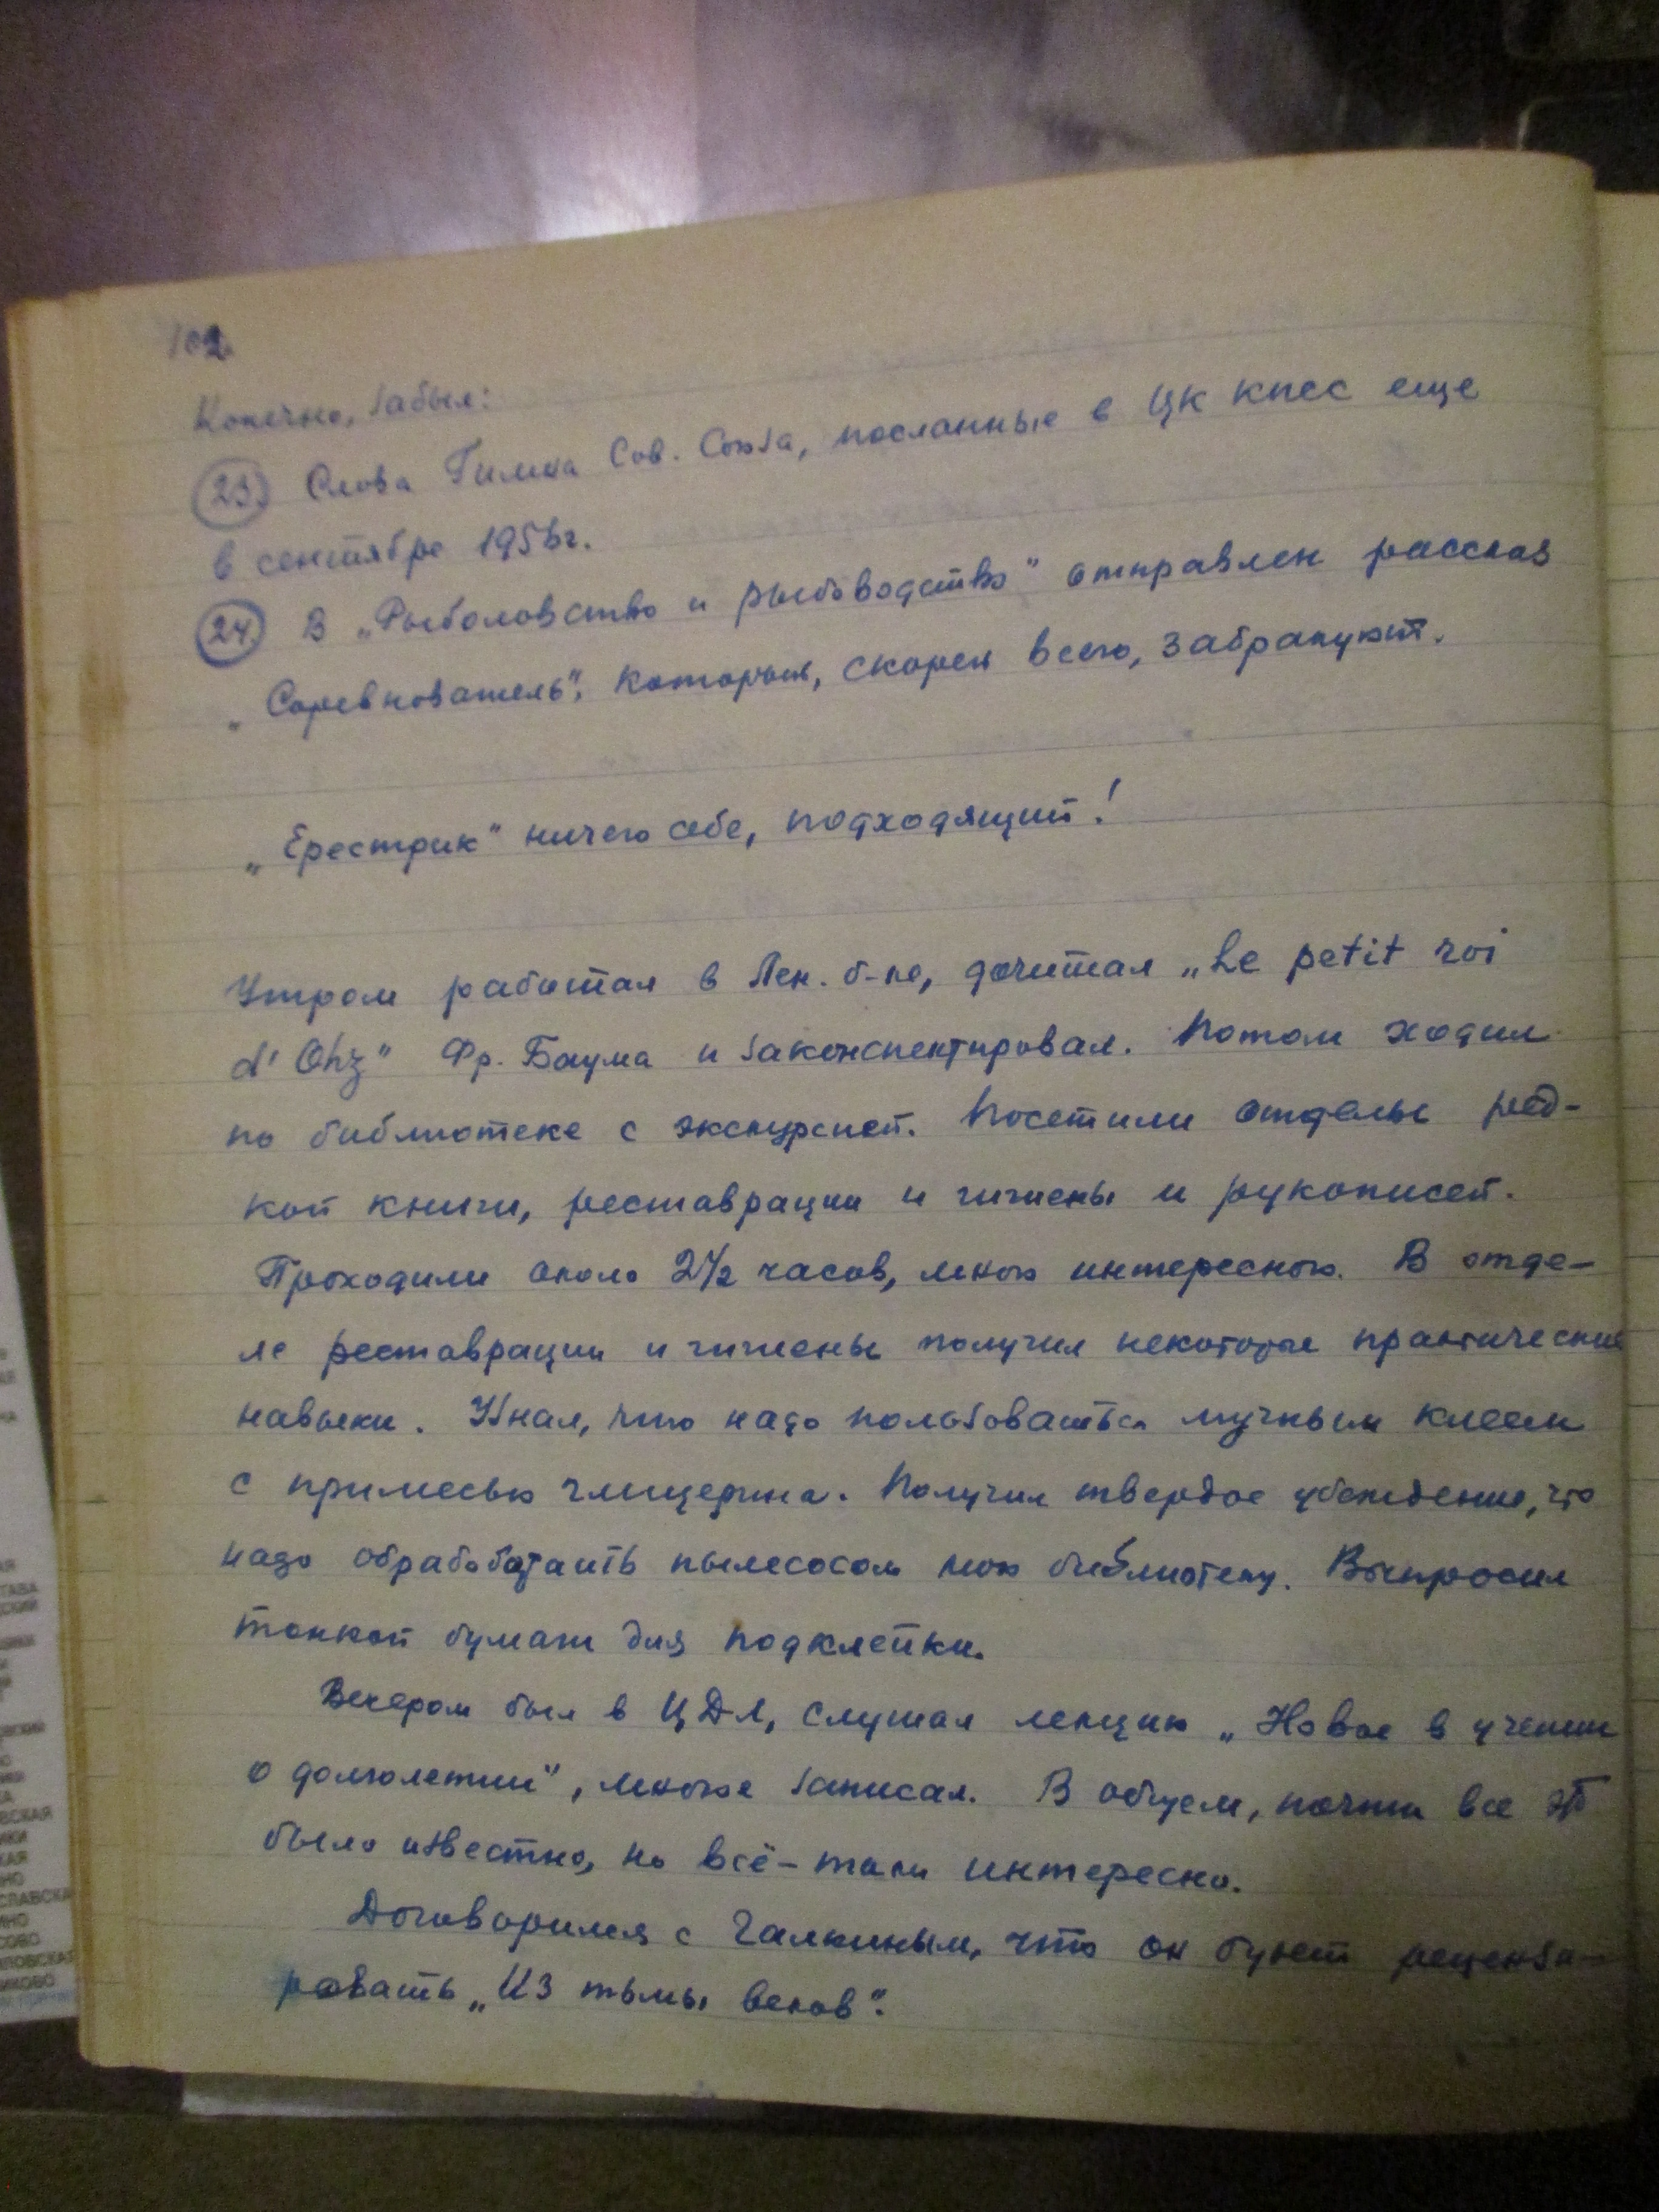 102
Конечно, забыл:
23. Слова Гимна Сов. Союза, посланные в ЦК КПСС еще
в сентябре 1956г.
24. В „Рыболовство и рыбоводство" отправлен рассказ
„Соревнователь", который, скорей всего, забракуют.
„Ерестрик" ничего себе, подходящий!
Утром работал в Лен. б-ке, дочитал „Le petit roi
d' Ohz" Фр. Баума и законспектировал. Потом ходил
по библиотеке с экскурсией. Посетили отделы ред-
кой книги, реставрации и гигиены и рукописей.
Проходили около 2 1/2 часов, много интересного. В отде-
ле реставрации и гигиены получил некоторые практические
навыки. Узнал, что надо пользоваться мучным клеем
с примесью глицерина. Получил твердое убеждение, что
надо обработать пылесосом мою библиотеку. Выпросил
тонкой бумаги для подклейки.
Вечером был в ЦДЛ, слушал лекцию „Новое в учении
о долголетии", многое записал. В общем, почти все это
было известно, но всё-таки интересно.
Договорился с Галкиным, что он будет рецензи-
ровать „Из тьмы веков".
ТАВА
ВСКАЯ
СЛАВСКА
СОВО
ИКОВО